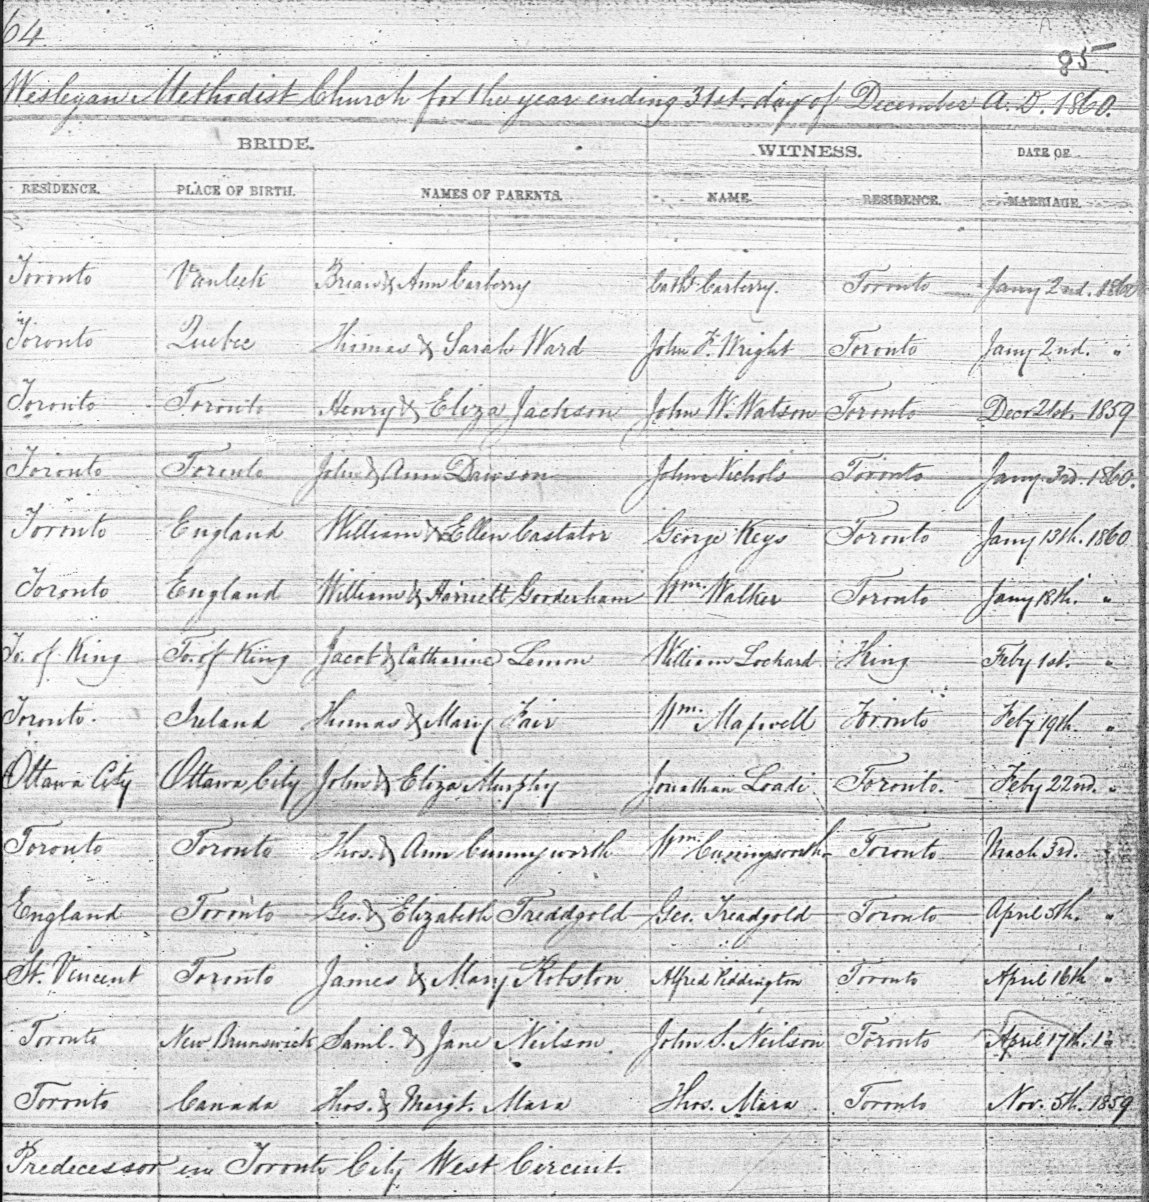 64
85
Wesleyan Methodist Church for the year ending 31st. day of December A.D. 1860.
BRIDE. WITNESS. DATE OF
RESIDENCE. PLACE OF BIRTH. NAMES OF PARENTS. NAME. RESIDENCE. MARRIAGE.
Toronto Vanleek Brian & Ann Carberry Cath. Carberry. Toronto Jany 2nd. 1860
Toronto Quebec Thomas & Sarah Ward John F. Wright Toronto Jany 2nd. "
Toronto Toronto Henry & Eliza Jackson John W. Watson Toronto Decr 21st. 1859
Toronto Toronto John & Ann Dawson John Nichols Toronto Jany. 3rd. 1860.
Toronto England William & Ellen Castator George Keys Toronto Jany 13th. 1860
Toronto England William & Harriett Gooderham Wm. Walker Toronto Jany 18th. "
To. of King To. of King Jacob & Catharine Lemon William Lockard King Feby 1st. "
Toronto. Ireland Thomas & Mary Fair Wm. Maxwell Toronto Feby 19th. "
Ottawa City Ottawa City John & Eliza Murphy Jonathan Toronto. Feby 22nd. "
Toronto Toronto Thos. & Ann Cunnyworth Wm. Toronto Mach 3rd. "
England Toronto Geo. & Elizabeth Treddgold Geo. Treadgold Toronto April 5th. "
St. Vincent Toronto James & Mary Robston Alfred Piddington Toronto April 16th "
Toronto New Brunswick Saml. & Jane Neilson John S. Neilson Toronto April 17th.
Toronto Canada Thos. & Margt. Mara Thos. Mara Toronto Nov. 5th. 1859
Predecessor in Toronto City West Circuit.